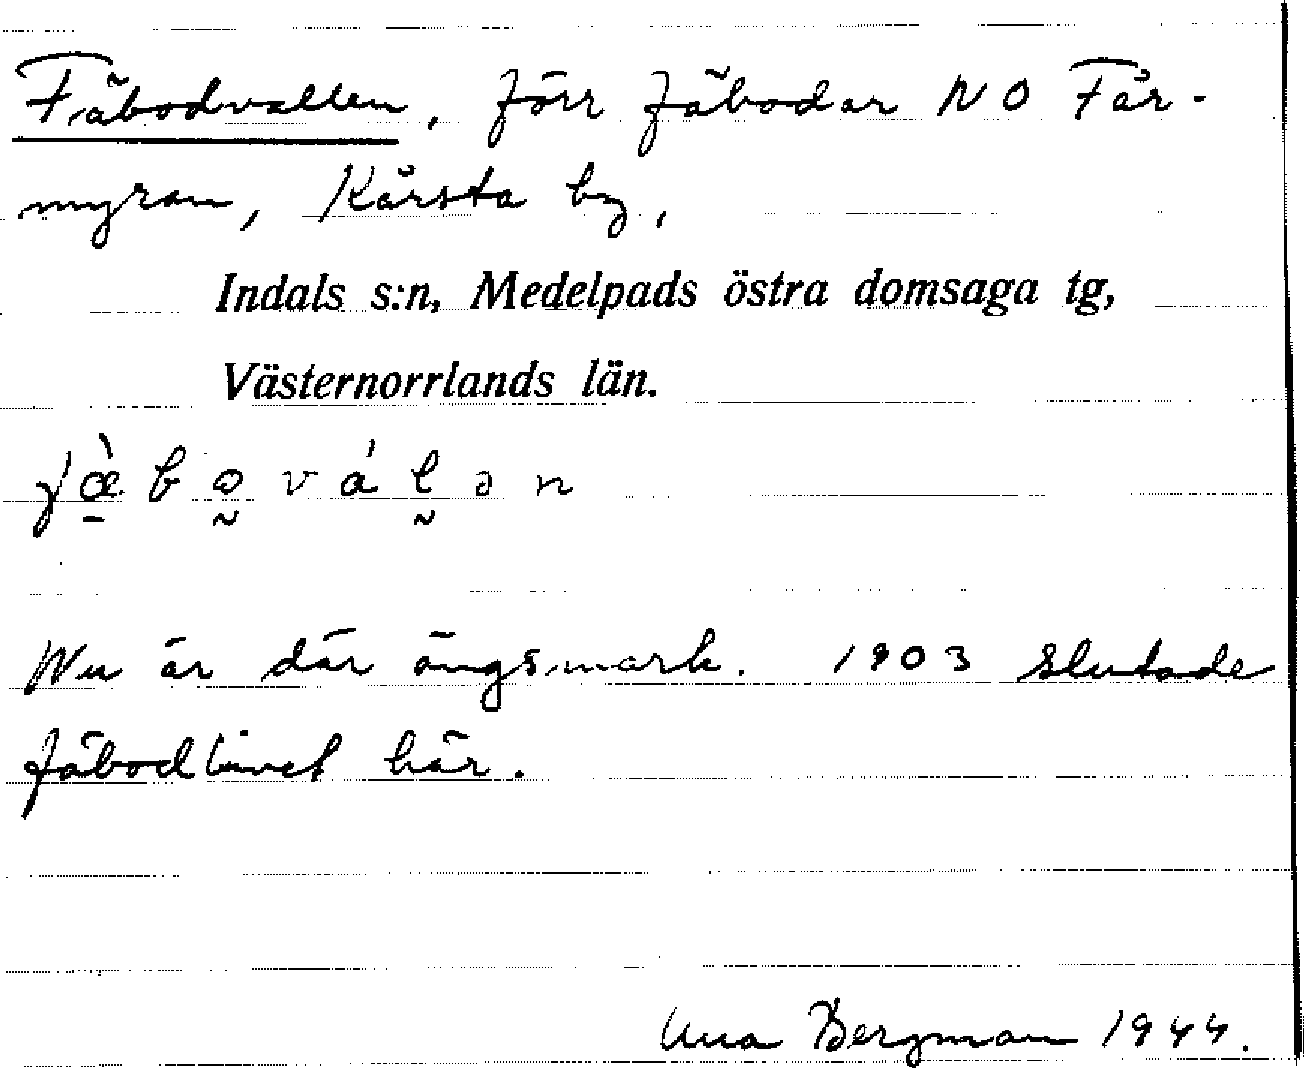 Fäbodvallen, förr fäbodar NO Får-
myran, Kårsta by,
Indals s:n, Medelpads östra domsaga tg,
Västernorrlands län.
fæ̀boválən
Nu är där ängsmark. 1903 slutade
fäbodlivet här.
Una Bergman 1944.